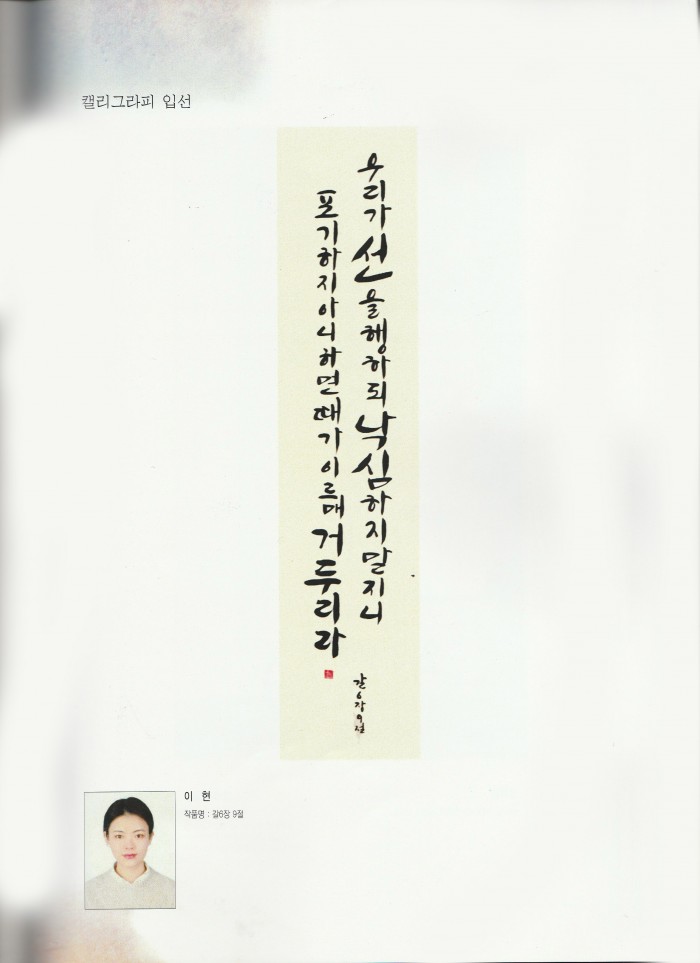 캘리그라피 입선
우리가선을행하되낙심하지말지니
포기하지아니하면때가이르매거두리라
갈6장9절
이 현
작품명 : 갈6장 9절